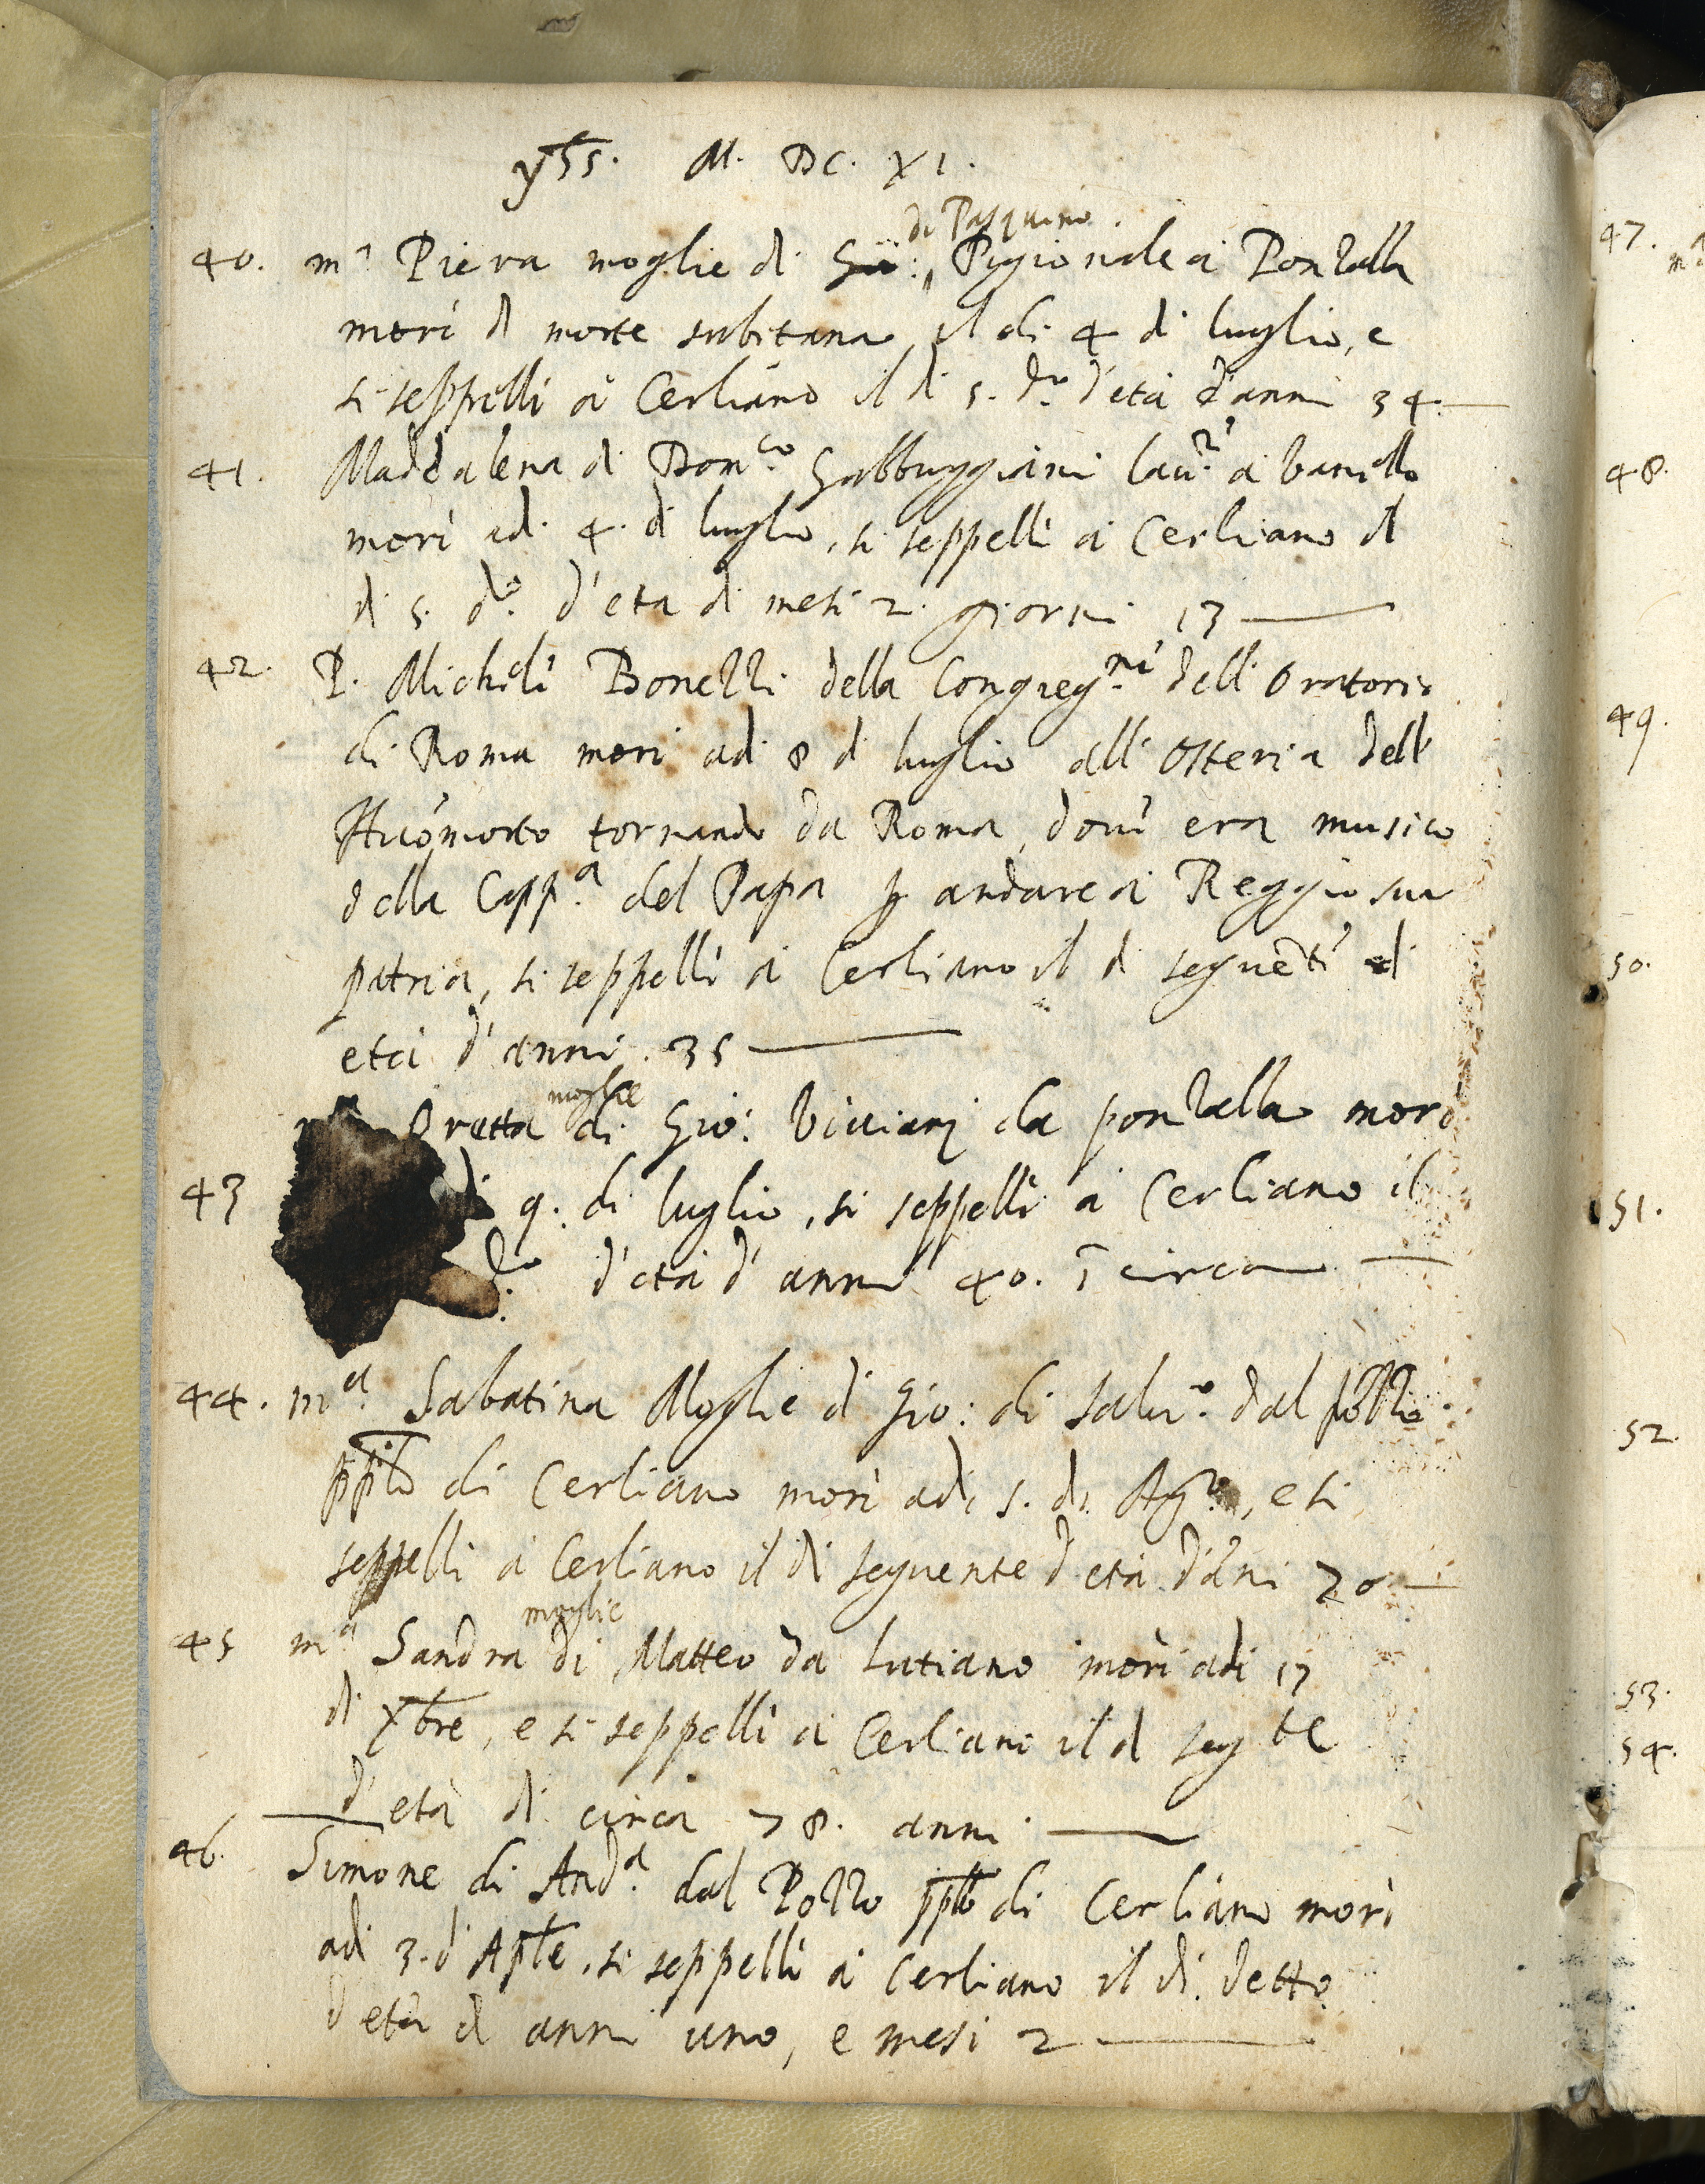 yħs. M. DC. XI.
di Pasquino.
40. mᵃ Piera moglie di Gio: Pigionale à Pontalla
morì di morte subitana, il di 4 di luglio, e
si seppellì à Cerliano il di 5. dº. d'età d'anni 34.
41. Maddalena di Domᶜᵒ. Gabbuggiani lauʳᵉ. à
morì adi 4. di luglio, si seppellì à Cerliano il
di 5. dº. d'eta di mesi 2. giorni 13
42. P. Michele Bonelli della Congregⁿᵉ. dell' Oratorio
di Roma morì adi 8 di luglio all' Osteria dell'
Huomorto tornando da Roma, dove era musico
della Cappᵃ. del Papa ꝑ andare à Reggio sua
patria, si seppellì à Cerliano il di seguēte di
età d'anni. 35
moglie
Oretta di Gio: Viviani da pontalla morì
43 di 9. di luglio, si seppellì à Cerliano il
dº. d'età d'anni 40. ī circa
44. mᵃ. Sabatina Moglie di Gio: di Salvʳᵉ. dal pozzo
pplo di Cerliano morì adi 5. di Agᵗᵒ., e si
seppellì à Cerliano il di seguente d'età d'āni 70
moglie
45 mᵃ Sandra di Matteo da Lutiano morì adi 17
di Xbre, e si seppellì à Cerliano il di segᵗᵉ
d'età di circa 78. anni
46. Simone di Andᵃ. dal Pozzo pplo di Cerliano morì
adi 3. d'Aple, si seppellì à Cerliano il di detto
d'età di anni uno, e mesi 2
47.
48.
49.
50.
51.
52.
53.
54.